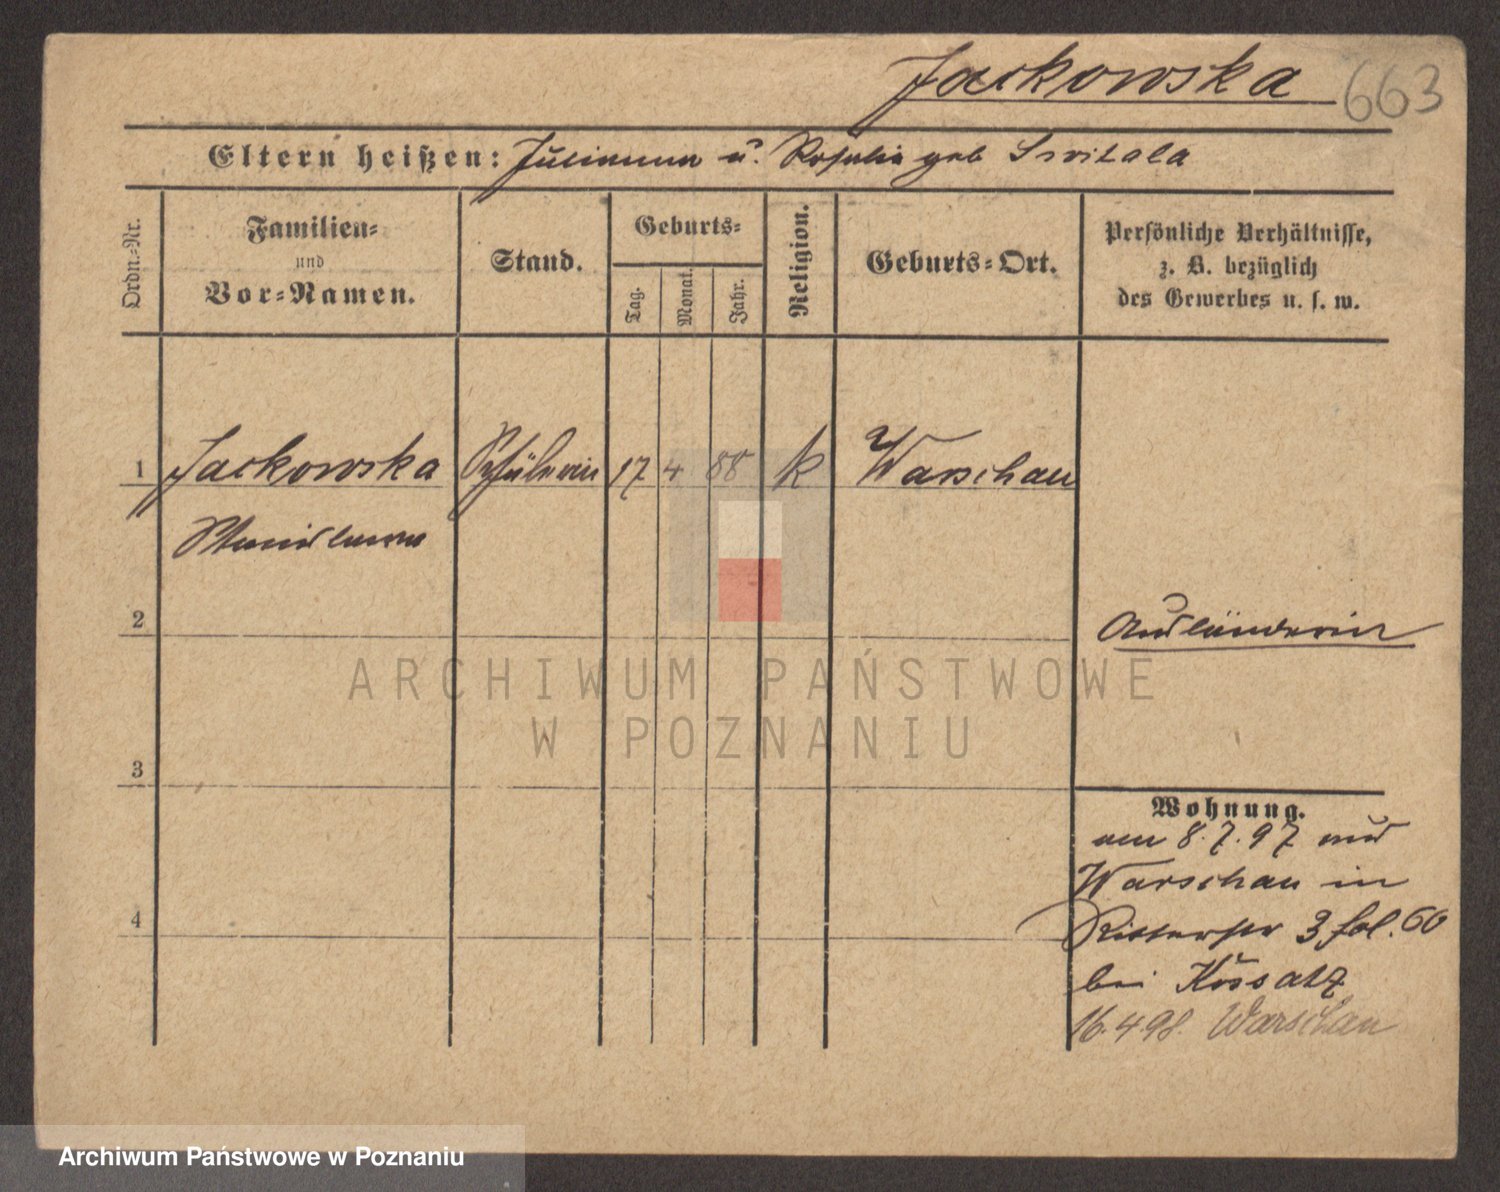 Jackowska 663
Eltern heißen: Julianna u. Rosalie geb Switala
Ordn.-Nr.
Familien-
und
Vor-Namen.
Stand.
Geburts-
Tag.
Monat.
Jahr.
Religion.
Geburts-Ort.
Persönliche Verhältnisse,
z. B. bezüglich
des Gewerbes u. s. w.
1 Jackowska Schülerin 17 4 88 k Warschau
2
Ausländerin
3
Wohnung.
am 8.7.97 aus
Warschau in
4
Ritterstr 3 fol. 60
bei Kossatz
16.4.98. Warschau
ARCHIWUM PAŃSTWOWE
W POZNANIU
Archiwum Państwowe w Poznaniu